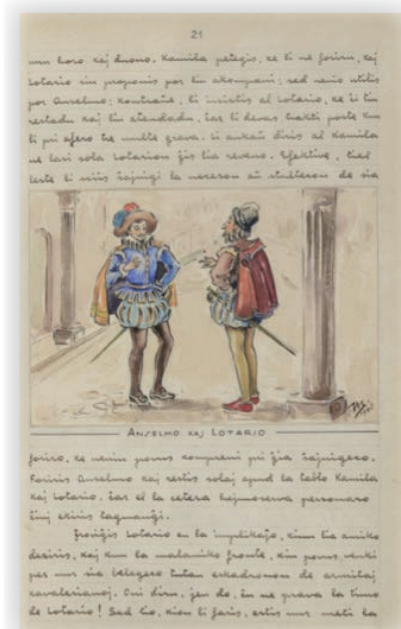 21
unu horo kaj duono. Kamila petegis, ke li ne foriru, kaj
Lotario sin proponis por lin akompani; sed nenio utilis
por Anselmo; kontraŭe, li insistis al Lotario, ke li tiu
restadu kaj lin atendadu, ĉar li devas trakti poste kun
li pri afero tre multe grava. Li ankaŭ diris al Kamila
ne lasi sola Lotarion ĝis lia reveno. Efektive, tiel
lerte li sciis ŝajnigi la neceson aŭ stulteson de sia
ANSELMO KAJ LOTARIO
foriro, ke neniu povus kompreni pri ĝia ŝajnigeco.
Foriris Anselmo kaj restis solaj apud la tablo Kamila
kaj Lotario, ĉar el la cetera hejmoserva personaro
ĉiuj ekiris tagmanĝi.
Troviĝis Lotario en la implikaĵo, kiun lia amiko
deziris, kaj kun la malamiko fronte, kiu povus venki
per nur sia belegeco tutan eskadronon de armitaj
kavalerianoj. Oni diru, jen do, ĉu ne prava la timo
de Lotario! Sed tio, kion li faris, estis nur meti la